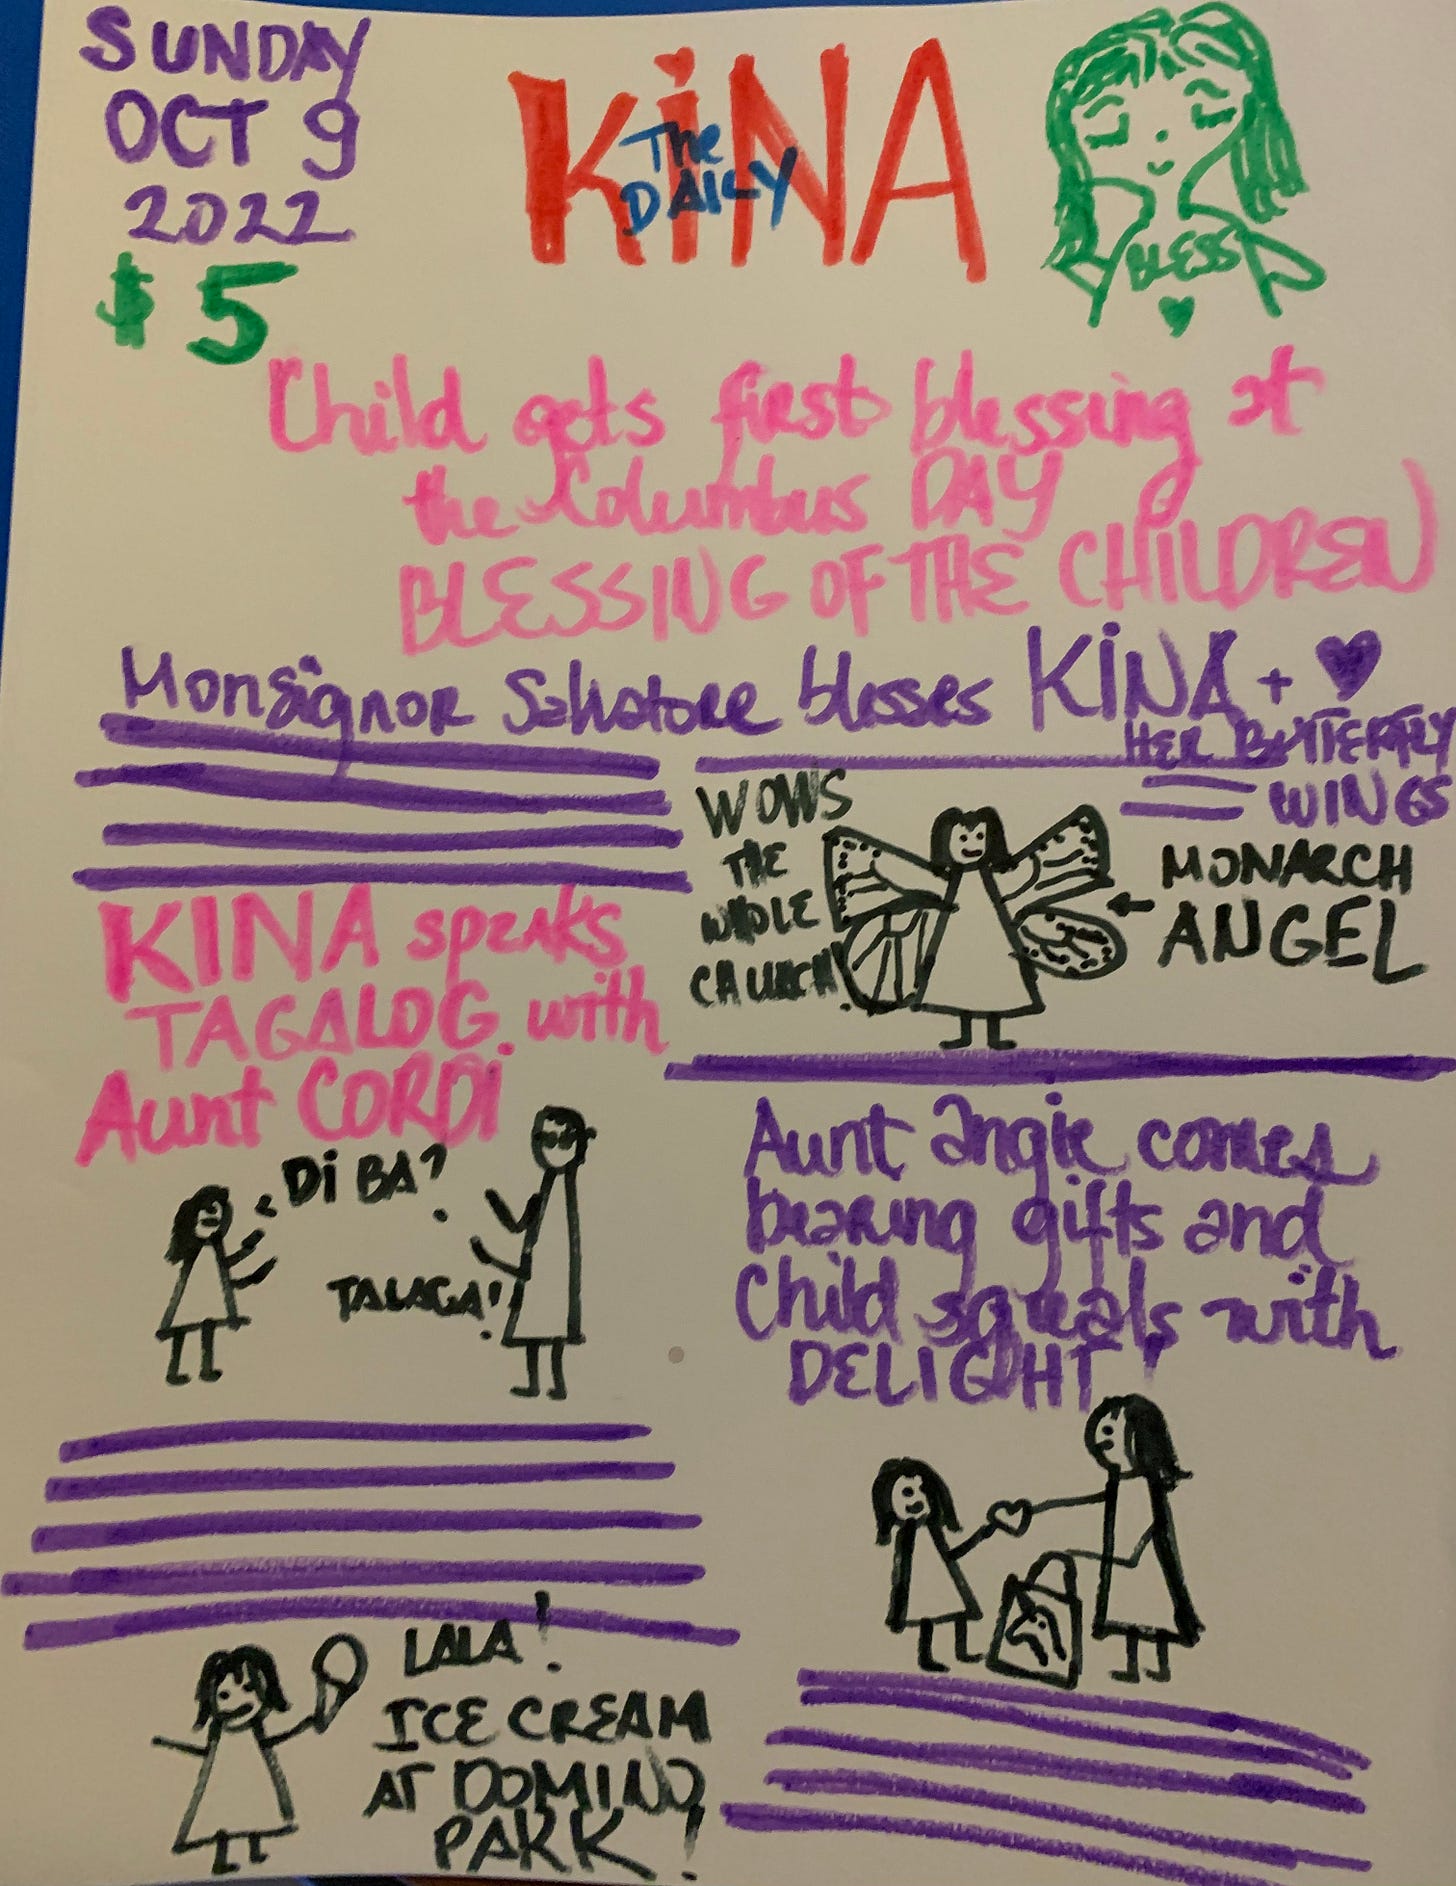 SUNDAY
OCT 9
2022
$5
The
DAILY
KiNA
BLESS
Child gets first blessing at
the Columbus DAY
BLESSING OF THE CHILDREN
Monsignor Salvatore blesses KiNA + ♥
HER BUTTERFLY
WINGS
WOWS
THE
WHOLE
CHURCH!
MONARCH
ANGEL
KINA speaks
TAGALOG with
Aunt CORDi
Di BA?
TALAGA!
Aunt angie comes
bearing gifts and
Child squeals with
DELIGHT!
LALA!
ICE CREAM
AT DOMINO
PARK!